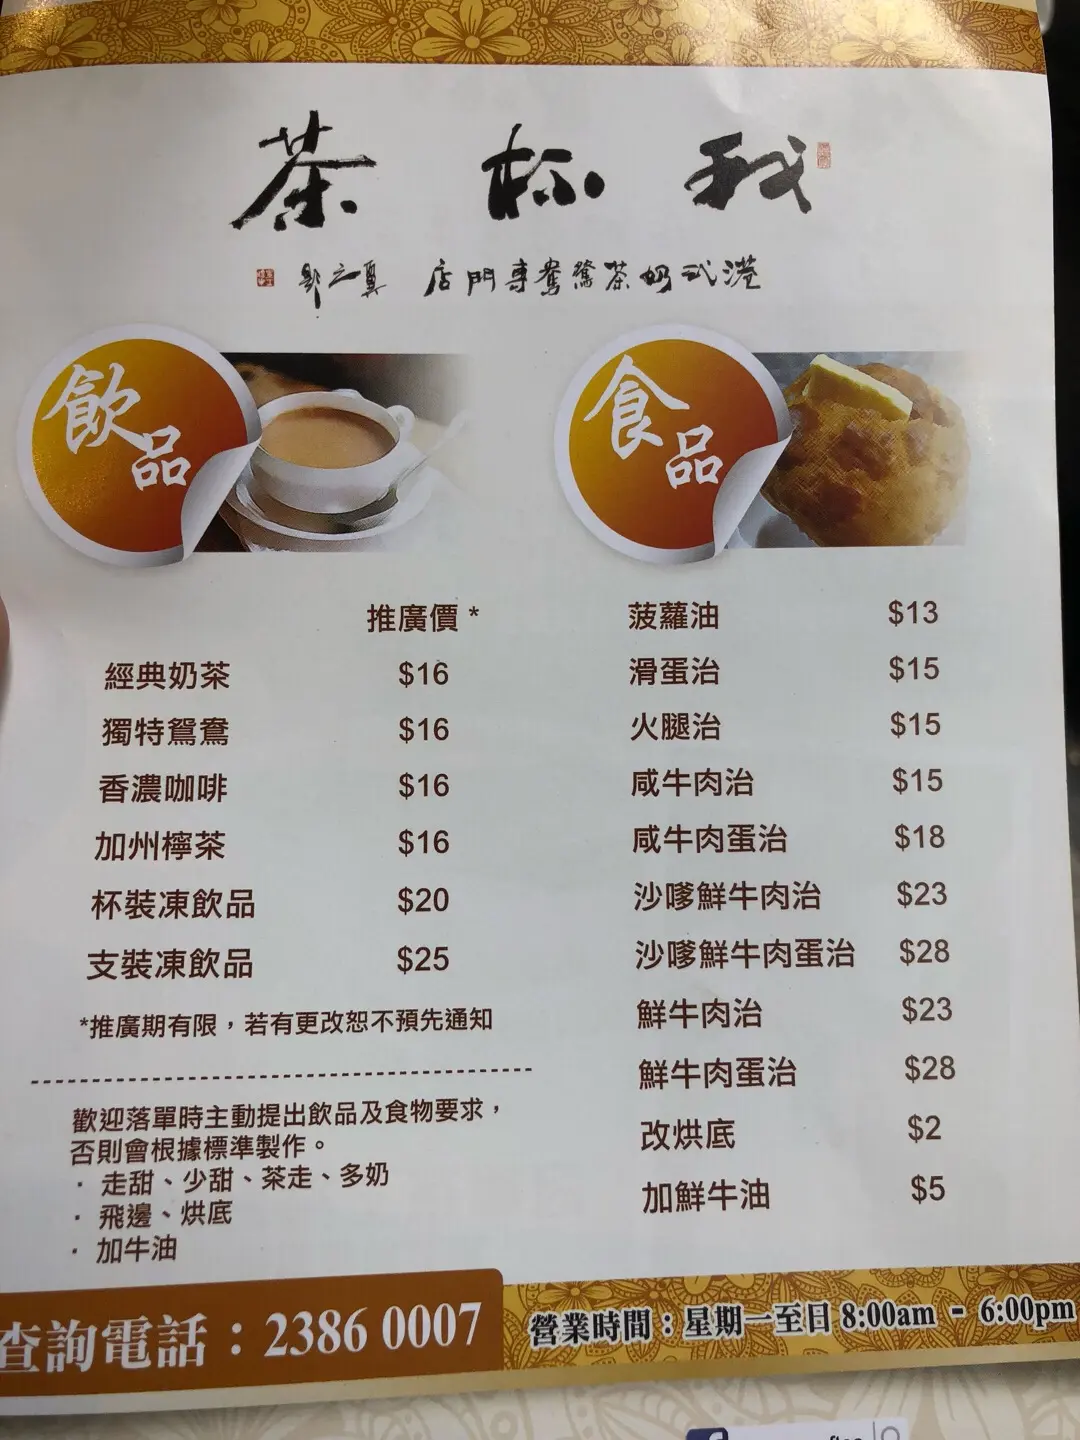 我杯茶
港式奶茶鴛鴦專門店
飲品
食品
推廣價 *
經典奶茶 $16
獨特鴛鴦 $16
香濃咖啡 $16
加州檸茶 $16
杯裝凍飲品 $20
支裝凍飲品 $25
*推廣期有限，若有更改恕不預先通知
歡迎落單時主動提出飲品及食物要求，
否則會根據標準製作。
· 走甜、少甜、茶走、多奶
· 飛邊、烘底
· 加牛油
菠蘿油 $13
滑蛋治 $15
火腿治 $15
咸牛肉治 $15
咸牛肉蛋治 $18
沙嗲鮮牛肉治 $23
沙嗲鮮牛肉蛋治 $28
鮮牛肉治 $23
鮮牛肉蛋治 $28
改烘底 $2
加鮮牛油 $5
查詢電話：2386 0007
營業時間：星期一至日 8:00am - 6:00pm